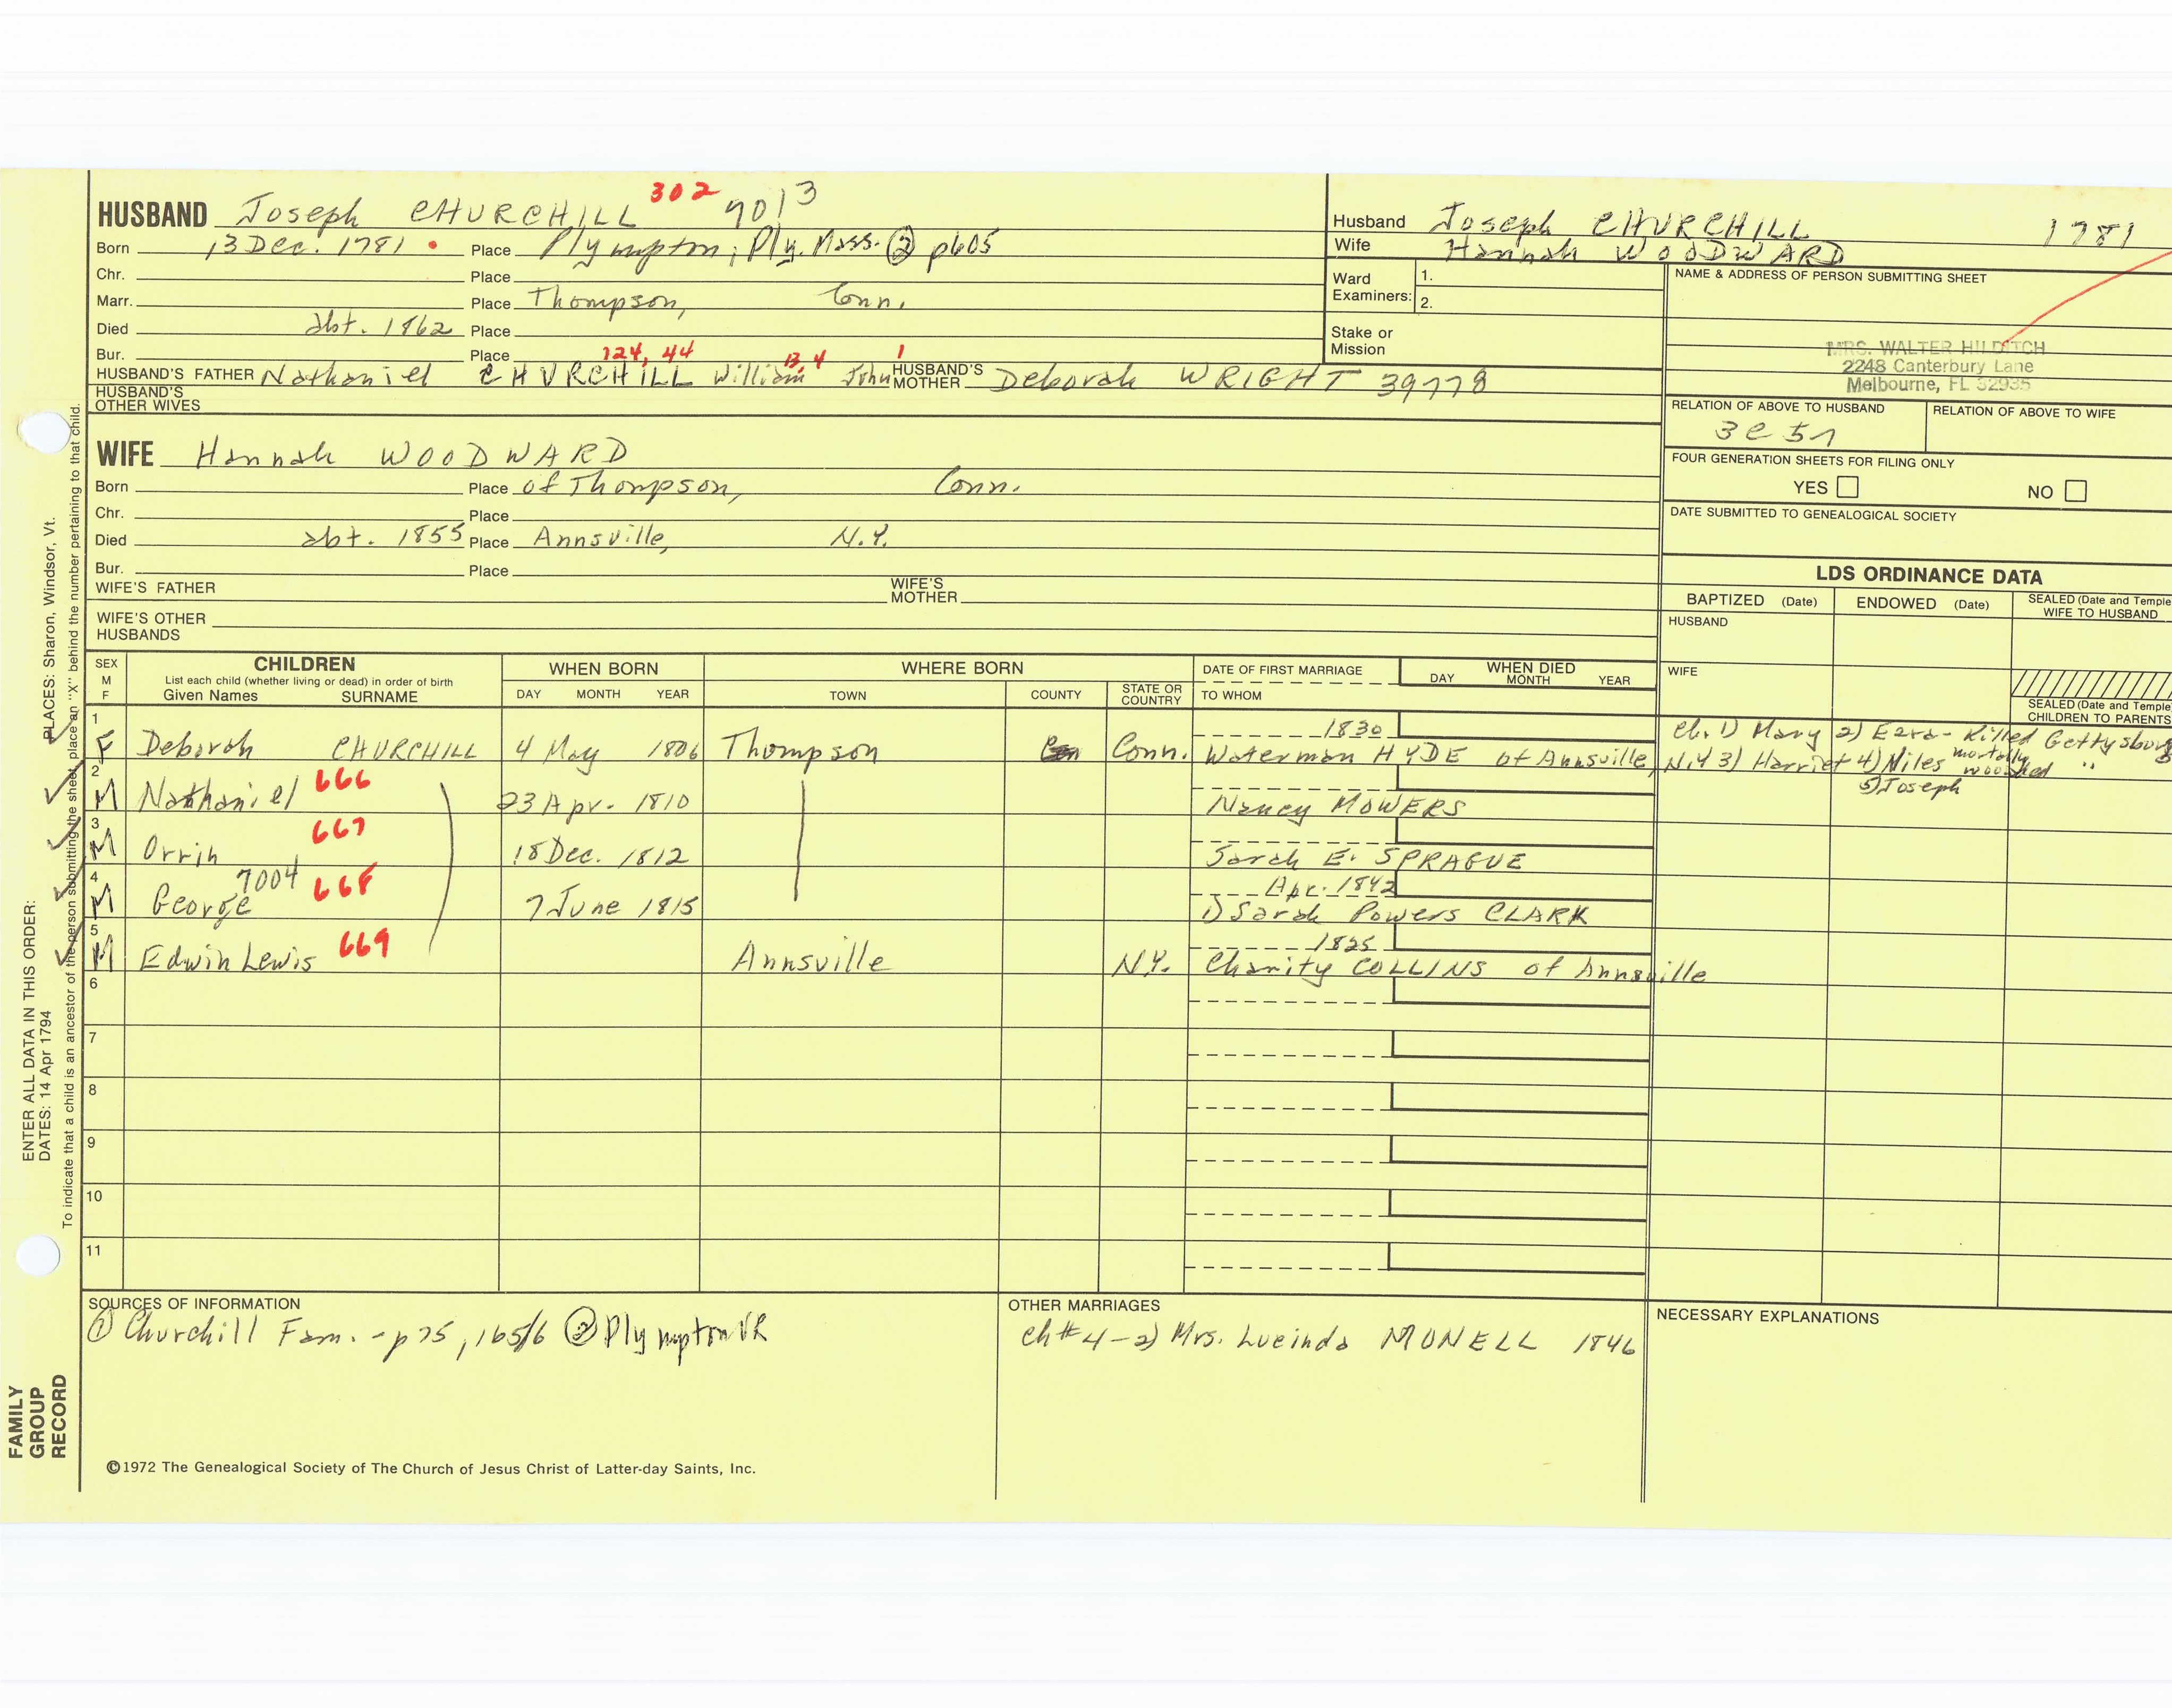 HUSBAND Joseph CHURCHILL 302 7013
Born 13 Dec. 1781 • Place Plympton, Ply. Mass. ② p605
Chr. Place
Marr. Place Thompson, Conn.
Died abt. 1862 Place
Bur. Place 124, 44 13, 4 1
HUSBAND'S FATHER Nathaniel CHURCHILL William John HUSBAND'S MOTHER Deborah WRIGHT 39778
HUSBAND'S OTHER WIVES
Husband Joseph CHURCHILL 1781
Wife Hannah WOODWARD
Ward Examiners: 1.
2.
Stake or Mission
NAME & ADDRESS OF PERSON SUBMITTING SHEET
MRS. WALTER HILDITCH
2248 Canterbury Lane
Melbourne, FL 32935
RELATION OF ABOVE TO HUSBAND RELATION OF ABOVE TO WIFE
3c 5r
FOUR GENERATION SHEETS FOR FILING ONLY
YES NO
DATE SUBMITTED TO GENEALOGICAL SOCIETY
WIFE Hannah WOODWARD
Born Place of Thompson, Conn.
Chr. Place
Died abt. 1855 Place Annsville, N.Y.
Bur. Place
WIFE'S FATHER WIFE'S MOTHER
WIFE'S OTHER HUSBANDS
LDS ORDINANCE DATA
BAPTIZED (Date) ENDOWED (Date) SEALED (Date and Temple) WIFE TO HUSBAND
HUSBAND
WIFE
SEALED (Date and Temple) CHILDREN TO PARENTS
SEX M F CHILDREN List each child (whether living or dead) in order of birth Given Names SURNAME
WHEN BORN DAY MONTH YEAR
WHERE BORN TOWN COUNTY STATE OR COUNTRY
DATE OF FIRST MARRIAGE TO WHOM
WHEN DIED DAY MONTH YEAR
1 F Deborah CHURCHILL 4 May 1806 Thompson Conn. 1830 Waterman HYDE of Annsville, N.Y
Ch. 1) Mary 2) Ezra - Killed Gettysburg
3) Harriet 4) Niles mortally wounded "
5) Joseph
2 M Nathaniel 666 23 Apr. 1810 Nancy MOWERS
3 M Orrin 667 18 Dec. 1812 Sarah E. SPRAGUE
4 M George 7004 668 7 June 1815 Apr. 1842 1) Sarah Powers CLARK
5 M Edwin Lewis 669 Annsville N.Y. 1825 Charity COLLINS of Annsville
6
7
8
9
10
11
SOURCES OF INFORMATION
① Churchill Fam. - p 75, 165/6 ② Plympton VR
OTHER MARRIAGES
ch # 4 - 2) Mrs. Lucinda MONELL 1846
NECESSARY EXPLANATIONS
©1972 The Genealogical Society of The Church of Jesus Christ of Latter-day Saints, Inc.
FAMILY GROUP RECORD
ENTER ALL DATA IN THIS ORDER:
DATES: 14 Apr 1794
PLACES: Sharon, Windsor, Vt.
To indicate that a child is an ancestor of the person submitting the sheet, place an "X" behind the number pertaining to that child.